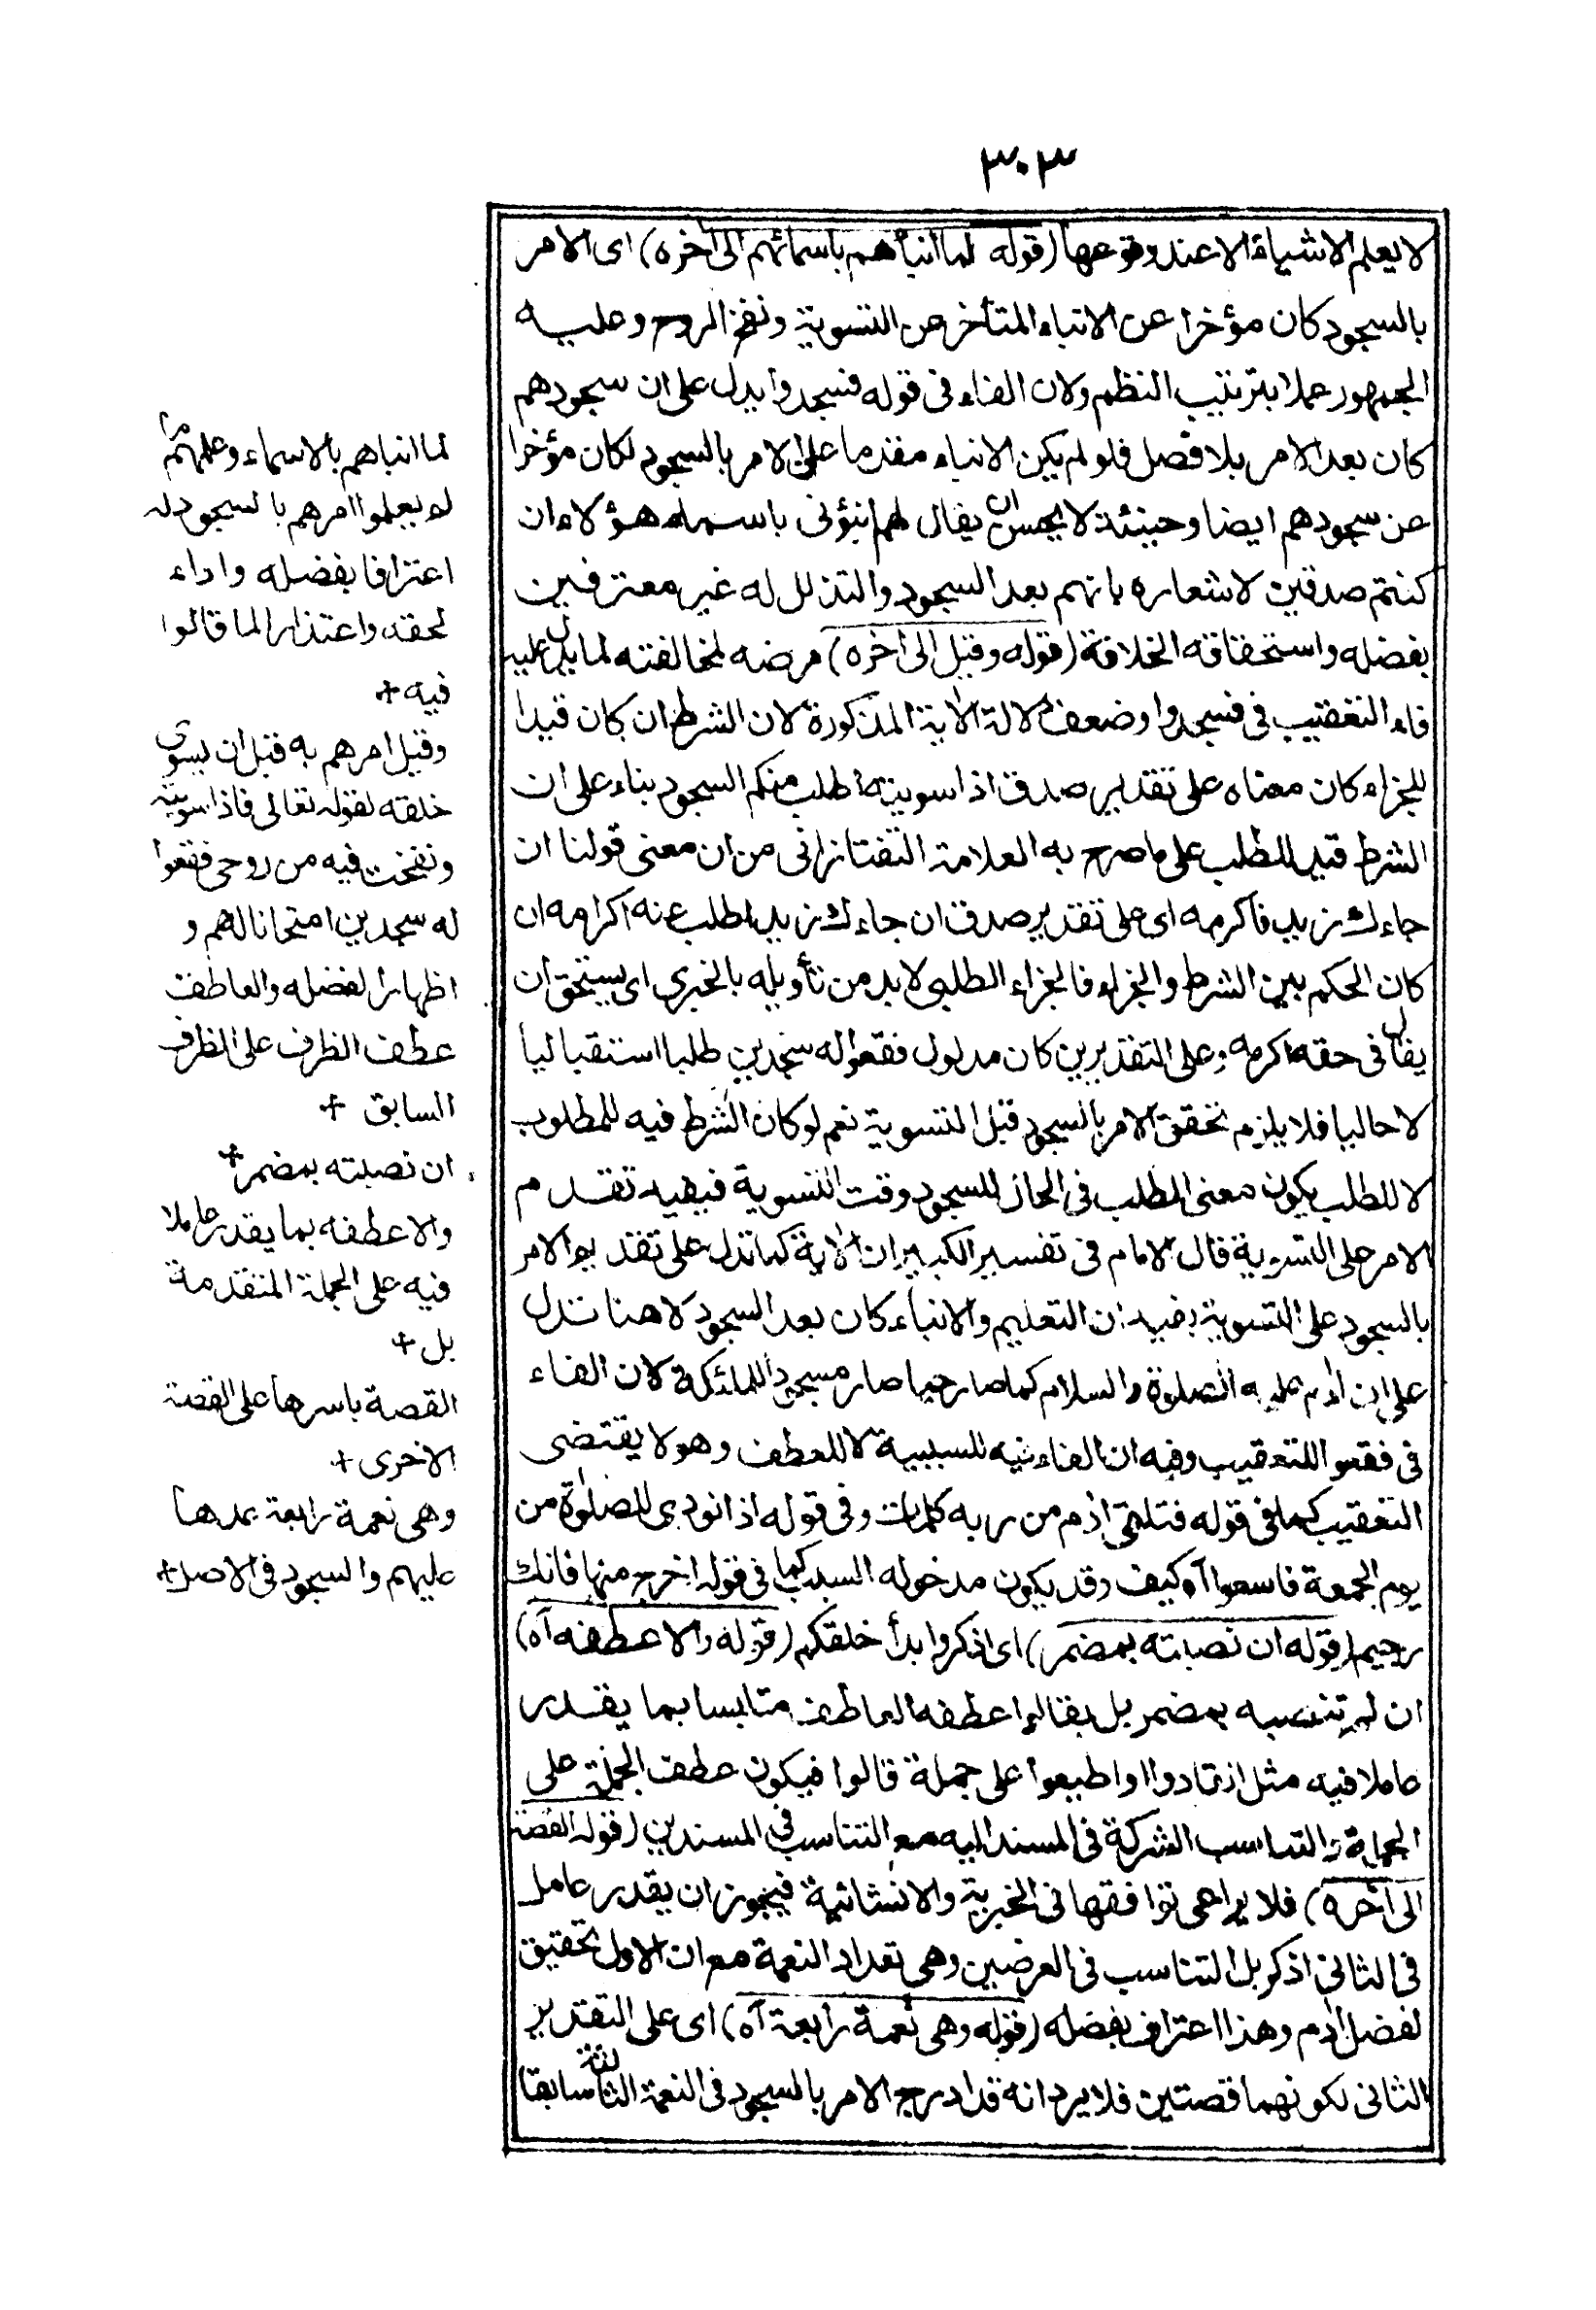 ٣٠٣
لا يعلم الاشياء الا عند وقوعها (قوله لما انبأهم باسمائهم الى اخره) اى الامر
بالسجود كان مؤخرا عن الانباء المتأخر عن التسوية ونفخ الروح وعليه
الجمهور عملا بترتيب النظم ولان الفاء فى قوله فسجدوا يدل على ان سجودهم
كان بعد الامر بلا فصل فلو لم يكن الانباء مقدما على الامر بالسجود لكان مؤخرا
عن سجودهم ايضا وحينئذ لا يحسن ان يقال لهم انبؤنى باسماء هؤلاء ان
كنتم صدقين لاشعاره بانهم بعد السجود والتذلل له غير معترفين
بفضله واستحقاقه الخلافة (قوله وقيل الى اخره) مرضه لمخالفته لما يدل عليه
فاء التعقيب فى فسجدوا وضعف دلالة الاية المذكورة لان الشرط ان كان قيدا
للجزاء كان معناه على تقدير صدق اذا سويته اطلب منكم السجود بناء على ان
الشرط قيد للطلب على ما صرح به العلامة التفتازانى من ان معنى قولنا ان
جاءك زيد فاكرمه اى على تقدير صدق ان جاءك زيد اطلب عنه اكرامه ان
كان الحكم بين الشرط والجزاء فالجزاء الطلبى لا بد من تأويله بالخبرى اى يستحق ان
يقال فى حقه اكرمه وعلى التقديرين كان مدلول فقعوا له سجدين طلبا استقباليا
لا حاليا فلا يلزم تحقق الامر بالسجود قبل التسوية نعم لو كان الشرط فيه للمطلوب
لا للطلب يكون معنى الطلب فى الحال للسجود وقت التسوية فيفيد تقدم
الامر على التسوية قال الامام فى تفسير الكبير ان الاية كما تدل على تقديم الامر
بالسجود على التسوية يفيد ان التعليم والانباء كان بعد السجود لا هنا تدل
على ان ادم عليه الصلوة والسلام كما صار حيا صار مسجودا للملئكة لان الفاء
فى فقعوا للتعقيب وفيه ان الفاء فيه للسببية لا للعطف وهو لا يقتضى
التعقيب كما فى قوله فتلقى ادم من ربه كلمات وفى قوله اذا نودى للصلوة من
يوم الجمعة فاسعوا آه كيف وقد يكون مدخوله السبب كما فى قوله اخرج منها فانك
رجيم (قوله ان نصبته بمضمر) اى اذكروا بدأ خلقكم (قوله والا عطفه آه)
ان لم تنصبه بمضمر بل بقالوا عطفه العاطف متلبسا بما يقدر
عاملا فيه مثل انقادوا واطيعوا على جملة قالوا فيكون عطف الجملة على
الجملة والتناسب الشركة فى المسند اليه مع التناسب فى المسندين (قوله القصة
الى اخره) فلا يراعى توافقها فى الخبرية والانشائية فيجوز ان يقدر عامل
فى الثانى اذكر بل التناسب فى الغرضين وهى تعداد النعمة مع ان الاول تحقيق
لفضل ادم وهذا اعتراف بفضله (قوله وهى نعمة رابعة آه) اى على التقدير
الثانى لكونهما قصتين فلا يرد انه قد ادرج الامر بالسجود فى النعمة الثالثة سابقا
لما انباهم بالاسماء وعلمهم ما
لم يعلموا امرهم بالسجود له
اعترافا بفضله واداء
لحقه واعتذارا لما قالوا
فيه +
وقيل امرهم به قبل ان يسوى
خلقه لقوله تعالى فاذا سويته
ونفخت فيه من روحى فقعوا
له سجدين امتحانا لهم و
اظهارا لفضله والعاطف
عطف الظرف على الظرف
السابق +
ان نصبته بمضمر +
والا عطفه بما يقدر عاملا
فيه على الجملة المتقدمة
بل +
القصة باسرها على القصة
الاخرى +
وهى نعمة رابعة عدها
عليهم والسجود فى الاصل +